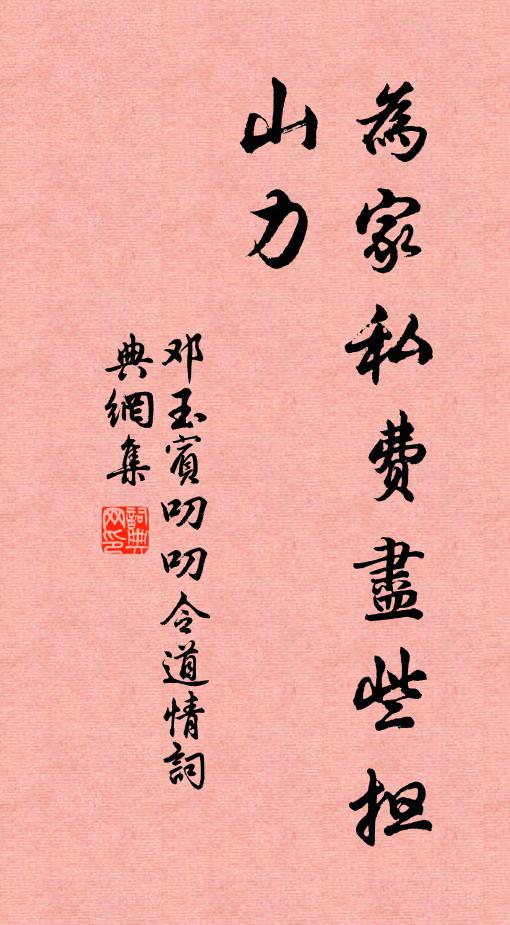 為家私費盡些担
山力
邓玉賓叨叨令道情詞
典網集
詞典
网印